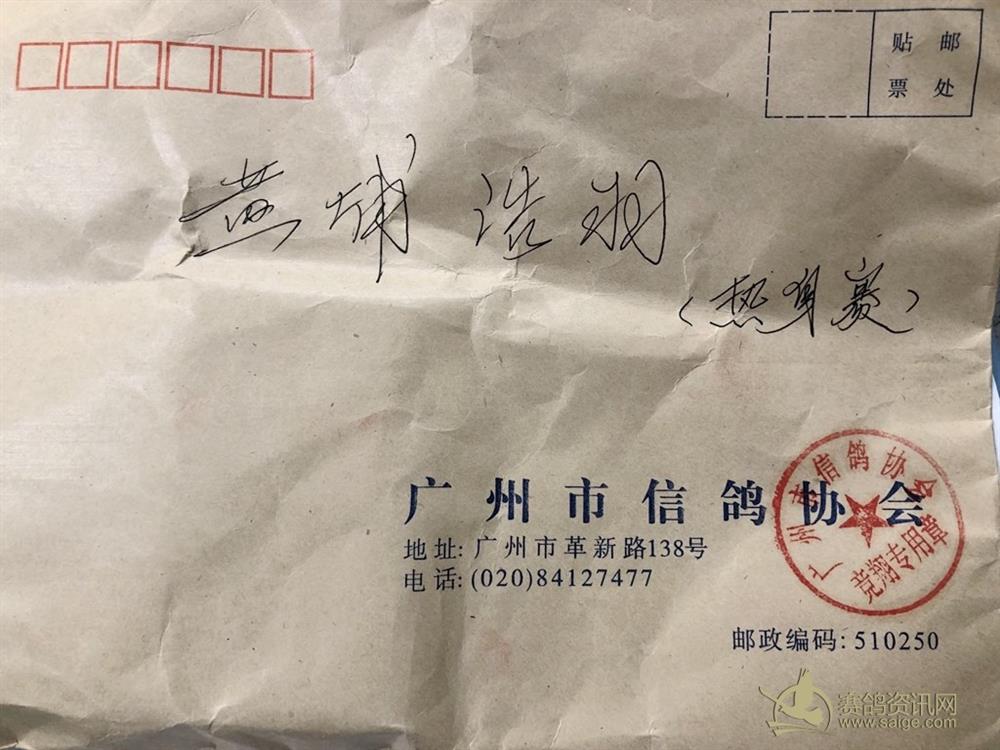 贴 邮
票 处
黄埔浩翔
(热身赛)
广州市信鸽协会
地址: 广州市革新路138号
电话: (020)84127477
广州市信鸽协会
竞翔专用章
邮政编码: 510250
赛鸽资讯网
www.saige.com